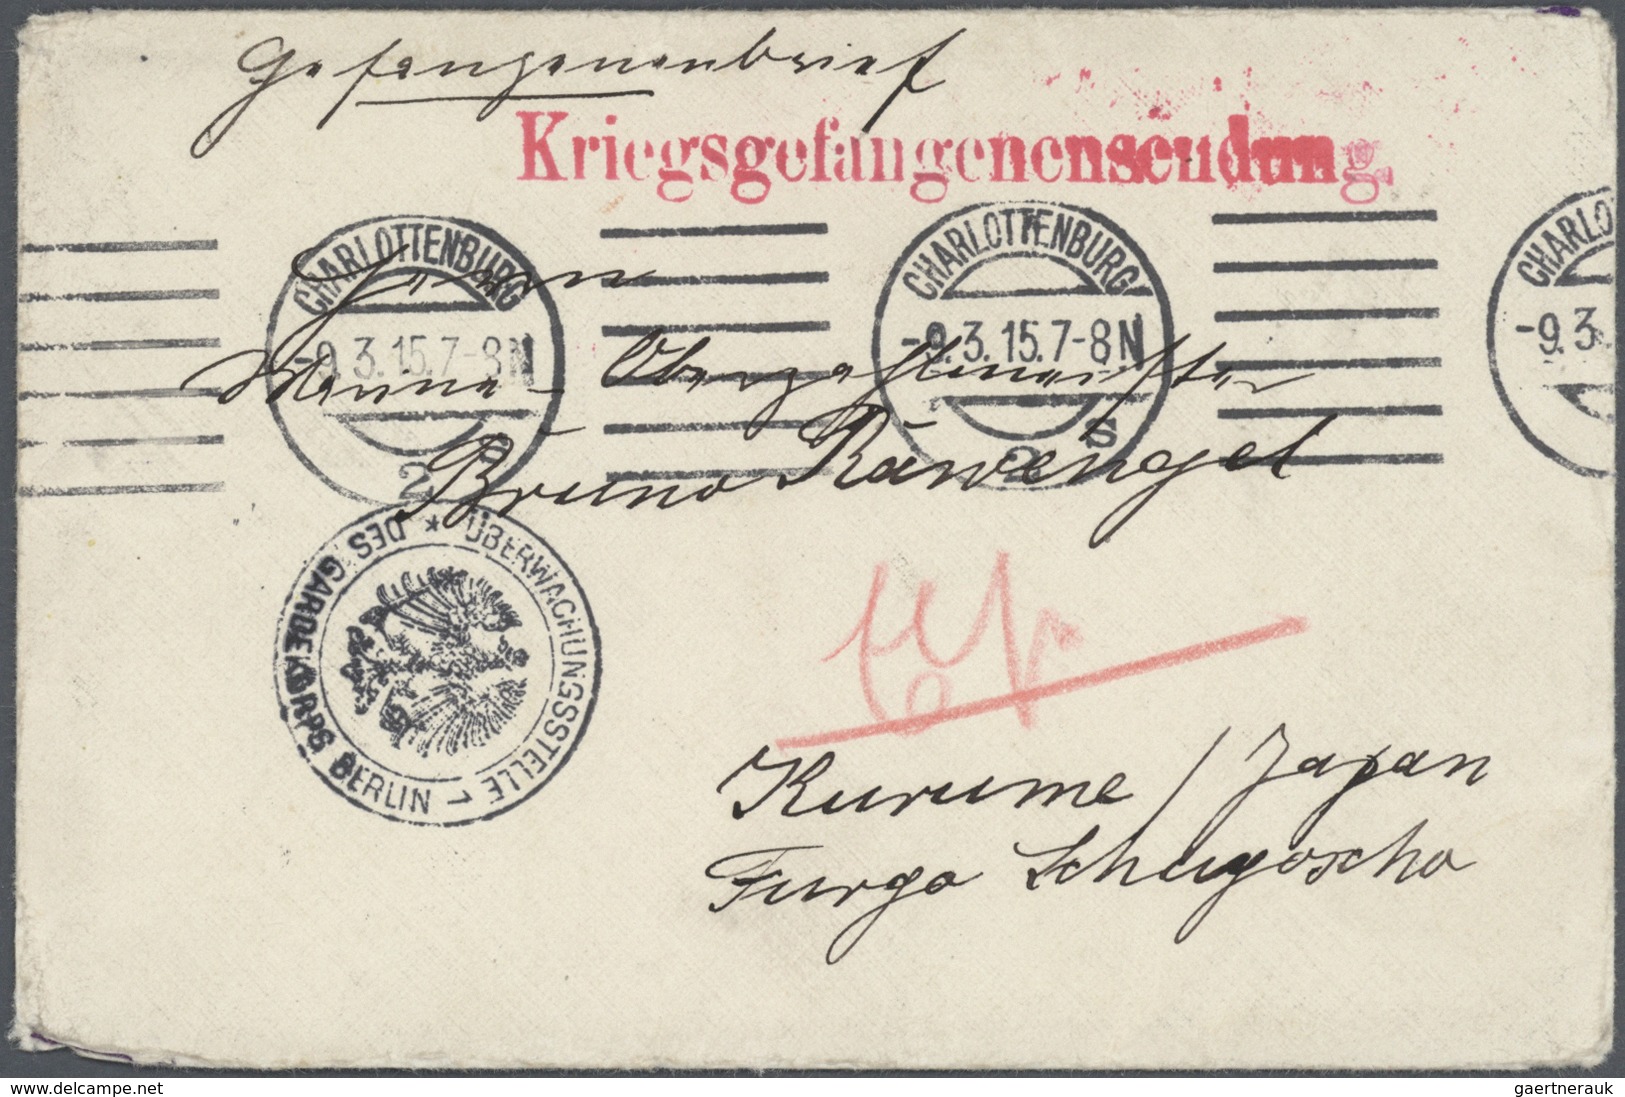 Gefangenenbrief
Kriegsgefangenensendung.
CHARLOTTENBURG
-9.3.15.7-8N
2
CHARLOTTENBURG
-9.3.15.7-8N
2
s
CHARLO
-9.3.
Herrn
Marine-Oberzahlmeister
Bruno Räwengel
ÜBERWACHUNGSSTELLE
DES GARDEKORPS BERLIN
*
Kurume / Japan
Furgo Schugoscho
www.delcampe.net
gaertnerauk